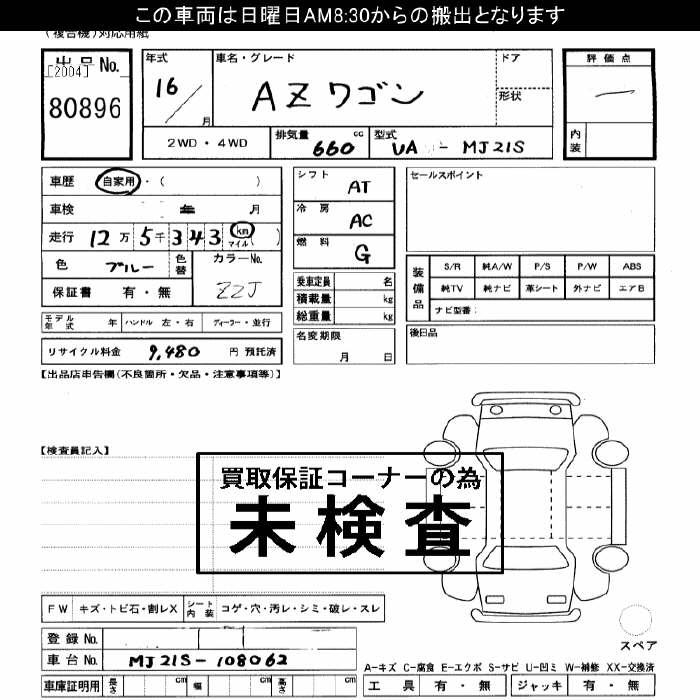 この車両は日曜日AM8:30からの搬出となります
(複合機)対応用紙
出品No.
[2004]
80896
年式
16
月
車名・グレード
AZワゴン
ドア
形状
評価点
内装
2WD・4WD
排気量 660 cc
型式 UA - MJ21S
車歴 自家用・( )
車検 年 月
走行 12万5千343 km マイル ( )
色 ブルー
色替
カラーNo. ZZJ
保証書 有・無
シフト AT
冷房 AC
燃料 G
乗車定員 名
積載量 kg
総重量 kg
セールスポイント
装備品
S/R 純A/W P/S P/W ABS
純TV 純ナビ 革シート 外ナビ エアB
ナビ型番:
モデル年式 年 ハンドル 左・右 ディーラー・並行
名変期限
月 日
後日品
リサイクル料金 9,480 円 預託済
【出品店申告欄(不良箇所・欠品・注意事項等)】
【検査員記入】
買取保証コーナーの為
未検査
FW キズ・トビ石・割レX シート内装 コゲ・穴・汚レ・シミ・破レ・スレ
登録No.
車台No. MJ21S-108062
車庫証明用 長さ cm 幅 cm 高さ cm
スペア
A-キズ C-腐食 E-エクボ S-サビ U-凹ミ W-補修 XX-交換済
工具 有・無 ジャッキ 有・無